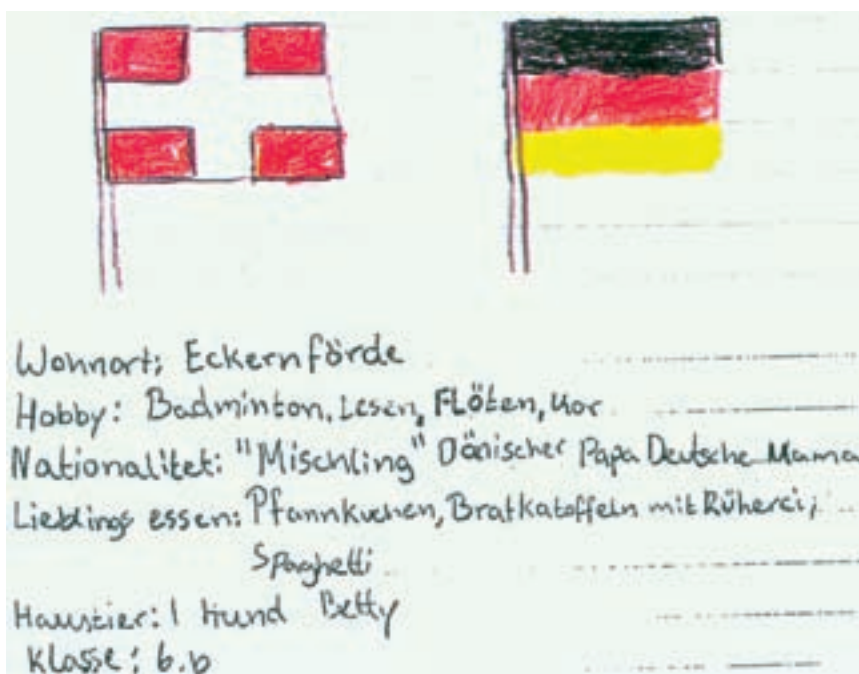 Wohnort: Eckernförde
Hobby: Badminton, Lesen, Flöten, Kor
Nationalitet: "Mischling" Dänischer Papa Deutsche Mama
Lieblings essen: Pfannkuchen, Bratkatoffeln mit Rüherei,
Spaghetti
Haustier: 1 Hund Betty
Klasse: 6.b